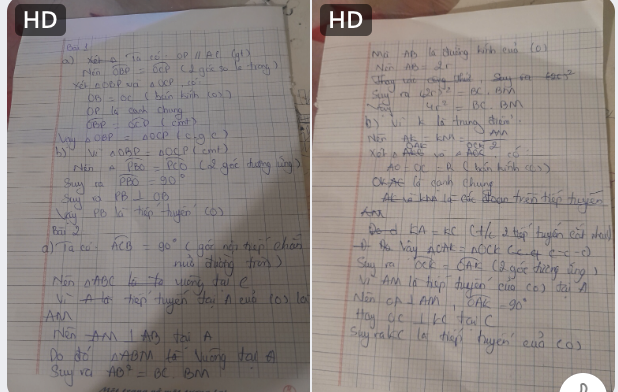 HD
Bài 1
a) Ta có: OP // AC (gt)
Nên OBP = OCP (2 góc so le trong)
Xét ΔOBP và ΔOCP có
OB = OC (bán kính (O))
OP là cạnh chung
OBP = OCP (cmt)
Vậy ΔOBP = ΔOCP (c.g.c)
b) Vì ΔOBP = ΔOCP (cmt)
Nên PBO = PCO (2 góc tương ứng)
Suy ra PBO = 90°
Suy ra PB ⊥ OB
Vậy PB là tiếp tuyến (O)
Bài 2
a) Ta có: ACB = 90° (góc nội tiếp chắn
nửa đường tròn)
Nên ΔABC vuông tại C
Vì tiếp tuyến tại A của (O) là
AM
Nên AM ⊥ AB tại A
Do đó ΔABM vuông tại A
Suy ra AB² = BC. BM
HD
Mà AB là đường kính của (O)
Nên AB = 2r
Suy ra (2r)² = BC. BM
4r² = BC. BM
b) Vì K là trung điểm
AM
Nên AK = KM = 2
Xét ΔOAK và ΔOCK có
AO = OC = R (bán kính (O))
OK là cạnh chung
KA = KC (t/c 2 tiếp tuyến cắt nhau)
Vậy ΔOAK = ΔOCK (c-c-c)
Suy ra OCK = OAK (2 góc tương ứng)
Vì AM là tiếp tuyến của (O) tại A
Nên ⊥ AM, OAK = 90°
Hay OC ⊥ KC tại C
Suy ra KC là tiếp tuyến của (O)